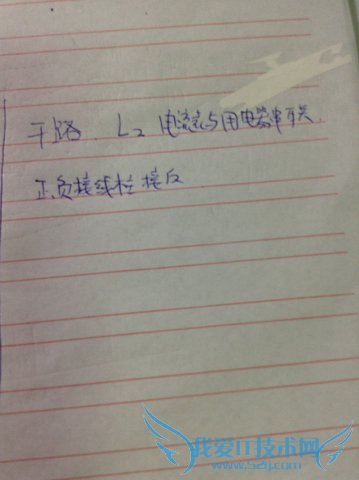 干路 L2 电流表与用电器串联
正负接线柱接反
我爱IT技术网
www.52ij.com